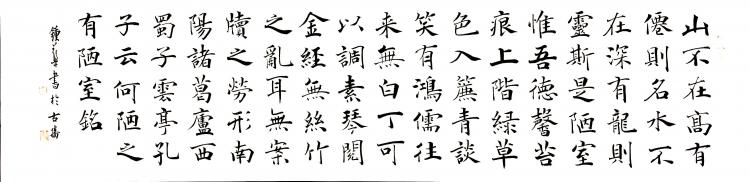 山不在髙有
僊則名水不
在深有龍則
靈斯是陋室
惟吾徳馨苔
痕上階緑草
色入簾青談
笑有鴻儒往
来無白丁可
以調素琴閱
金経無絲竹
之亂耳無案
牘之勞形南
陽諸葛廬西
蜀子雲亭孔
子云何陋之
有陋室銘
書於古